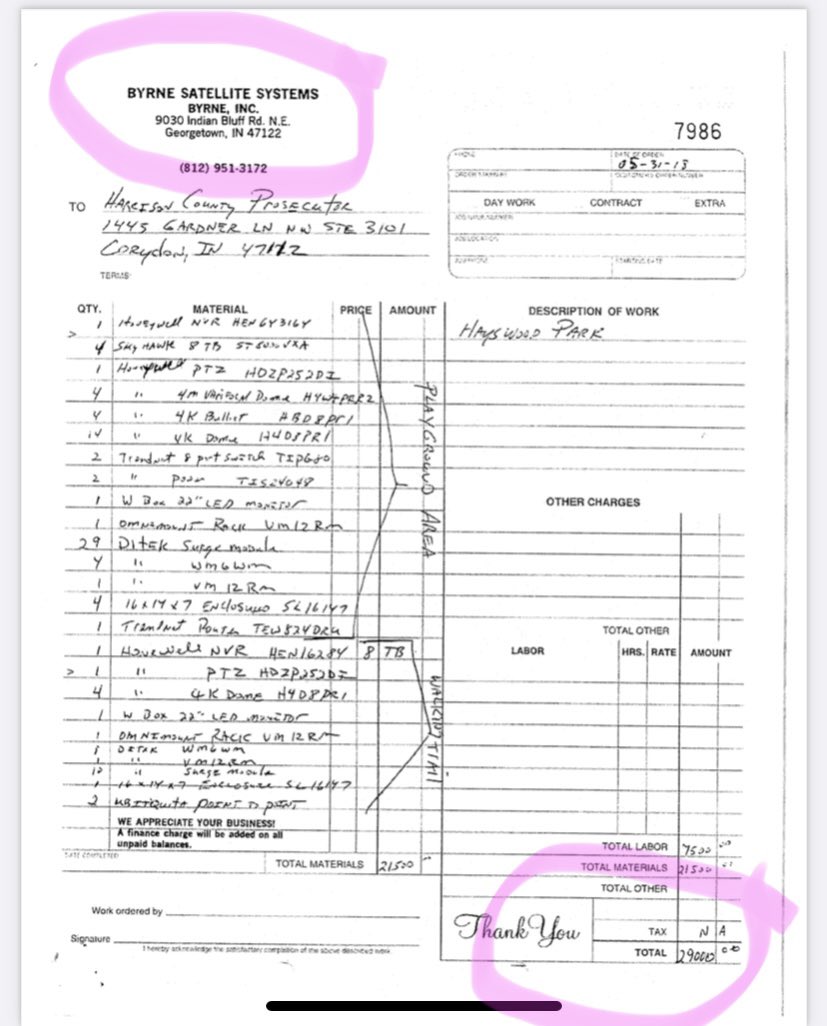 BYRNE SATELLITE SYSTEMS
BYRNE, INC.
9030 Indian Bluff Rd. N.E.
Georgetown, IN 47122
(812) 951-3172
7986
PHONE
DATE OF ORDER
05-31-18
DAY WORK CONTRACT EXTRA
JOB LOCATION
STARTING DATE
TO HARRISON COUNTY PROSECUTOR
1445 GARDNER LN NW STE 3101
CORYDON, IN 47112
TERMS:
QTY. MATERIAL PRICE AMOUNT DESCRIPTION OF WORK
HAYSWOOD PARK
1 Honeywell NVR HEN64316Y
4 SKYHAWK 8 TB
1 Honeywell PTZ HDZP252DI
4 " 4m Varifocal Dome
4 " 4K Bullet HBD8PR1
14 " 4K Dome H4D8PR1
2 Trendnet 8 port switch
2 "
1 W Box 22" LED monitor
1 OMNIMOUNT RACK VM12RM
29 DITEK Surge module
4 " WM6WM
1 " VM12RM
4 16x14x7 Enclosures SL16147
1 Trendnet Router
PLAYGROUND AREA
1 Honeywell NVR 8 TB
> 1 " PTZ HDZP252DI
4 " 4K Dome H4D8PR1
1 W Box 22" LED monitor
1 OMNIMOUNT RACK VM12RM
DITEK WM6WM
1 " VM12RM
" Surge module
1 16x14x7 Enclosure SL16147
2 POINT TO POINT
OTHER CHARGES
TOTAL OTHER
LABOR HRS. RATE AMOUNT
WE APPRECIATE YOUR BUSINESS!
A finance charge will be added on all
unpaid balances.
DATE COMPLETED
TOTAL MATERIALS 21500
TOTAL LABOR 7500 00
TOTAL MATERIALS 21500
TOTAL OTHER
Work ordered by
Signature
I hereby acknowledge the satisfactory completion of the above described work.
Thank You
TAX N A
TOTAL 29000 00